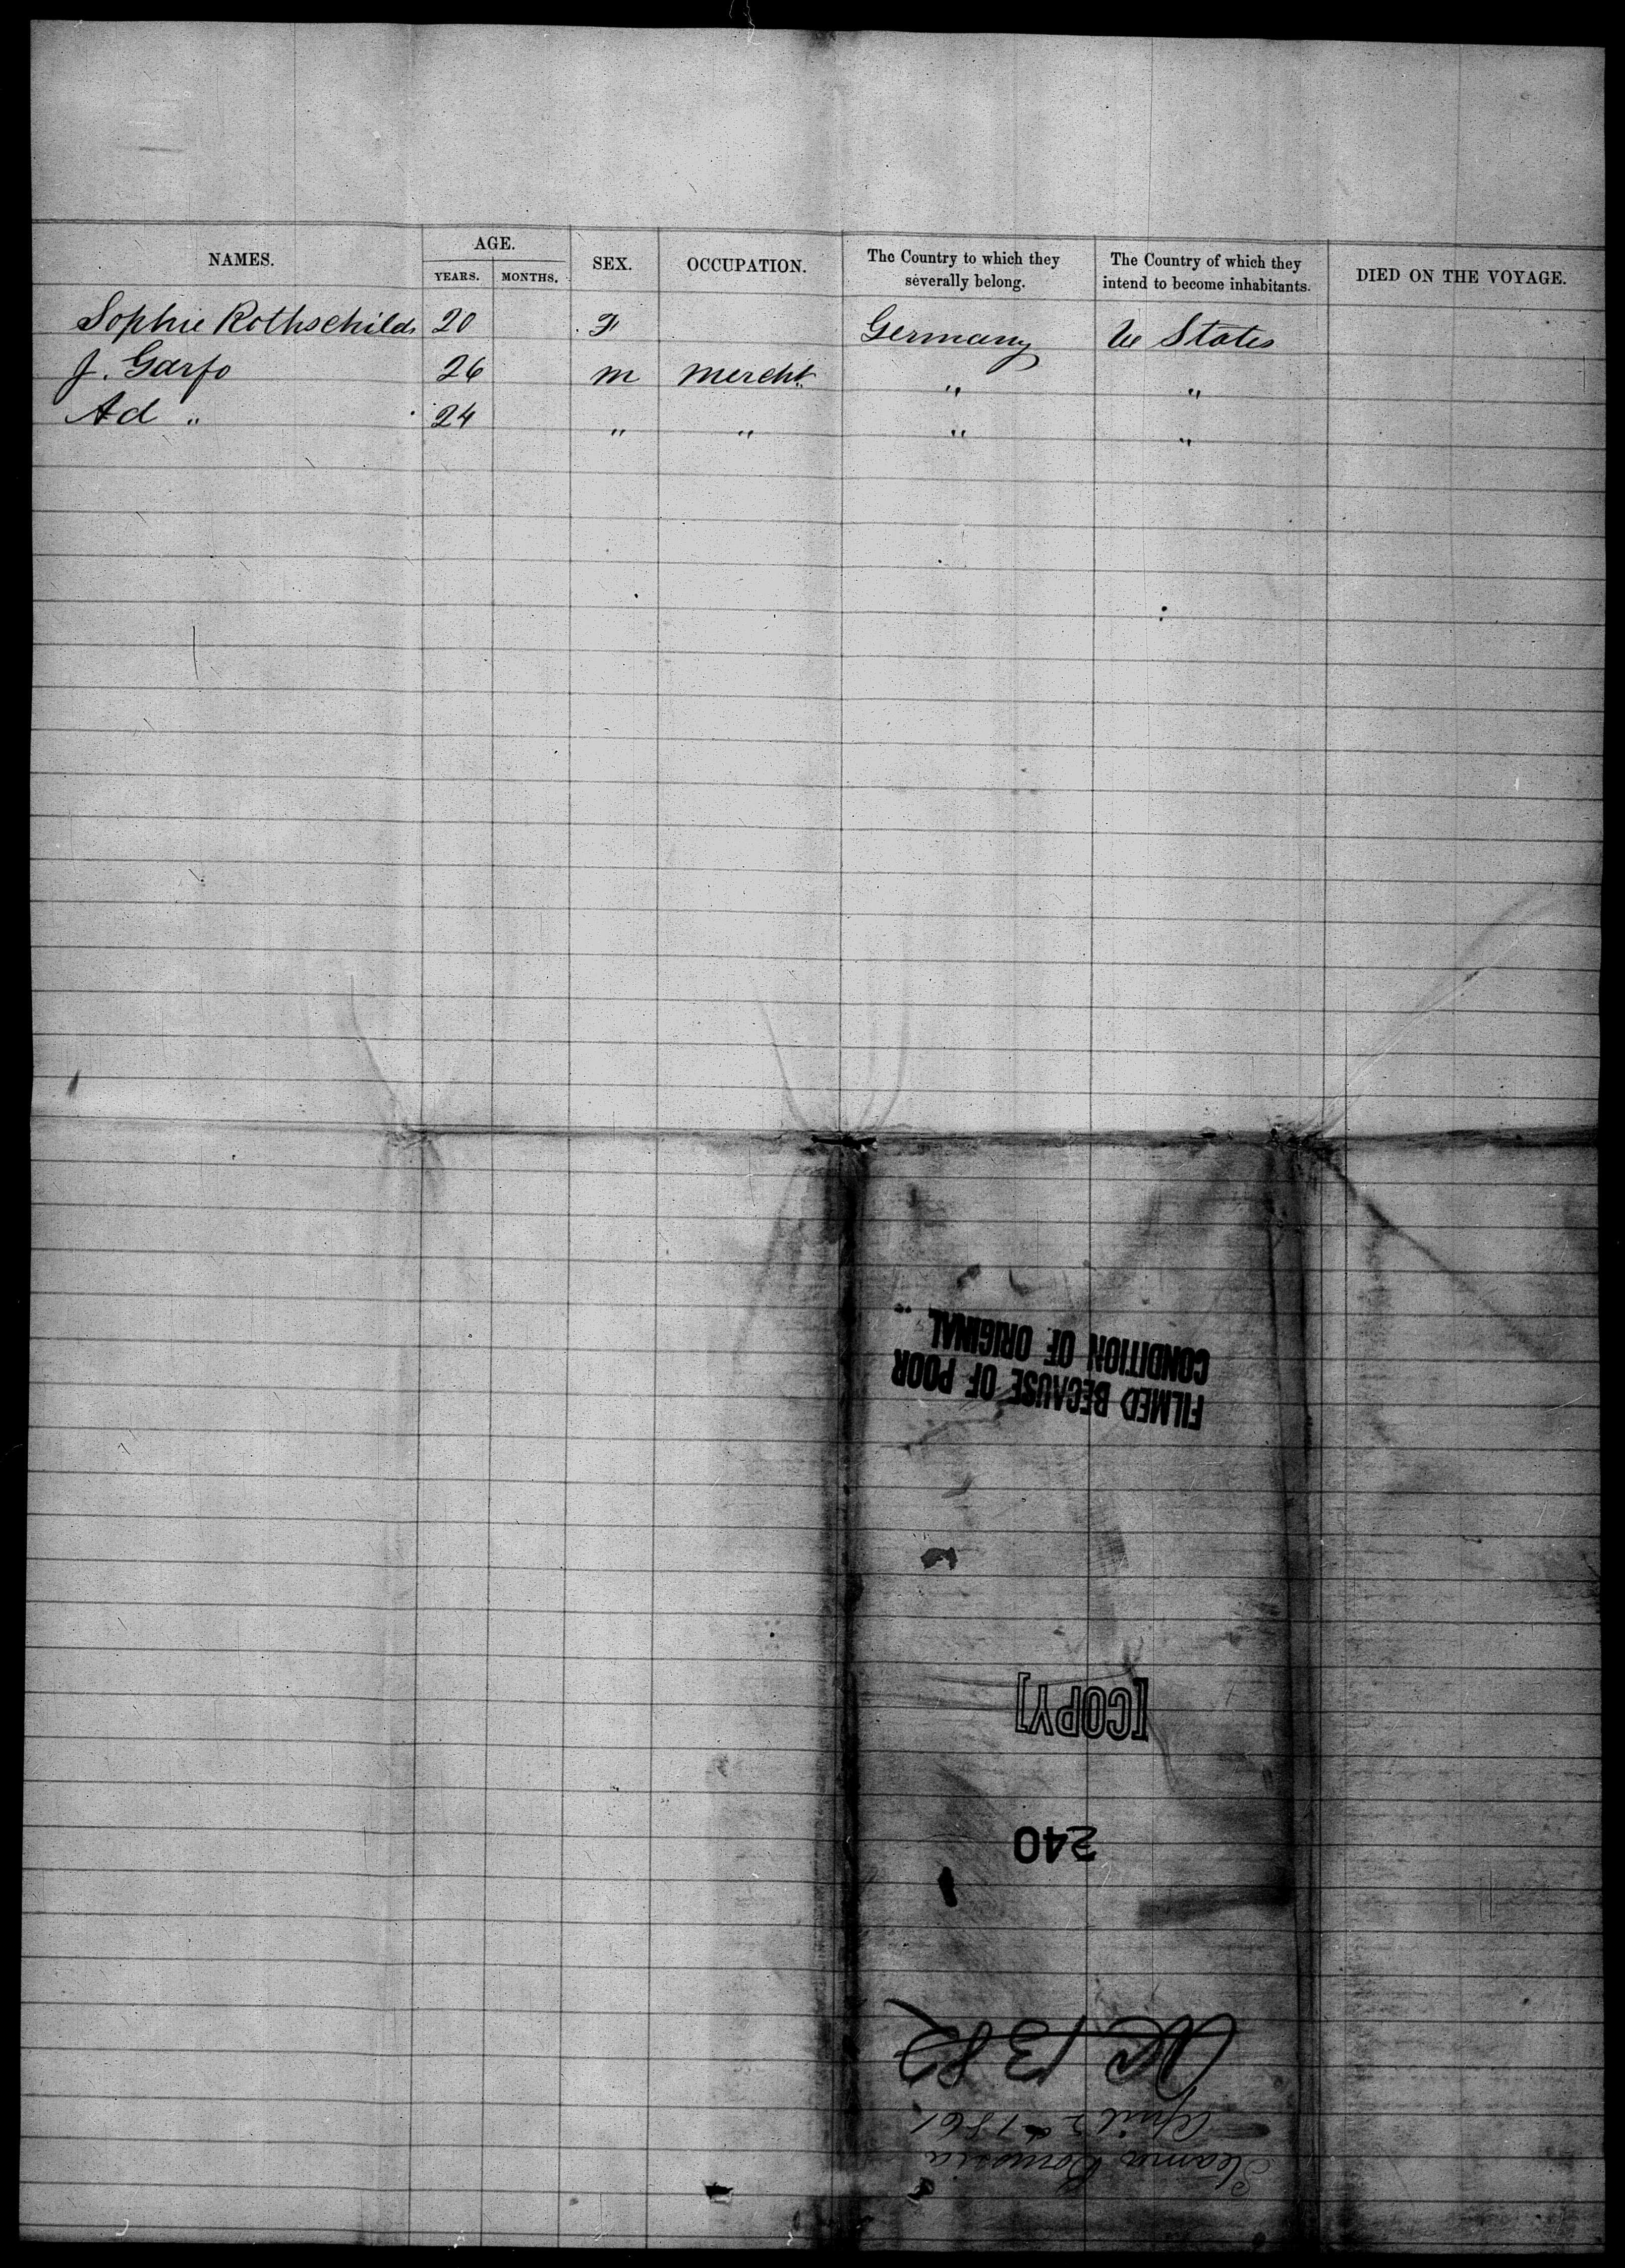 NAMES. AGE. SEX. OCCUPATION. The Country to which they severally belong. The Country of which they intend to become inhabitants. DIED ON THE VOYAGE.
YEARS. MONTHS.
Sophie Rothschild 20 F Germany U States
J. Garfo 26 m Mercht " "
Ad " 24 " " " "
FILMED BECAUSE OF POOR
CONDITION OF ORIGINAL
[COPY]
240
1382
Steamer Borussia
April 2 1861